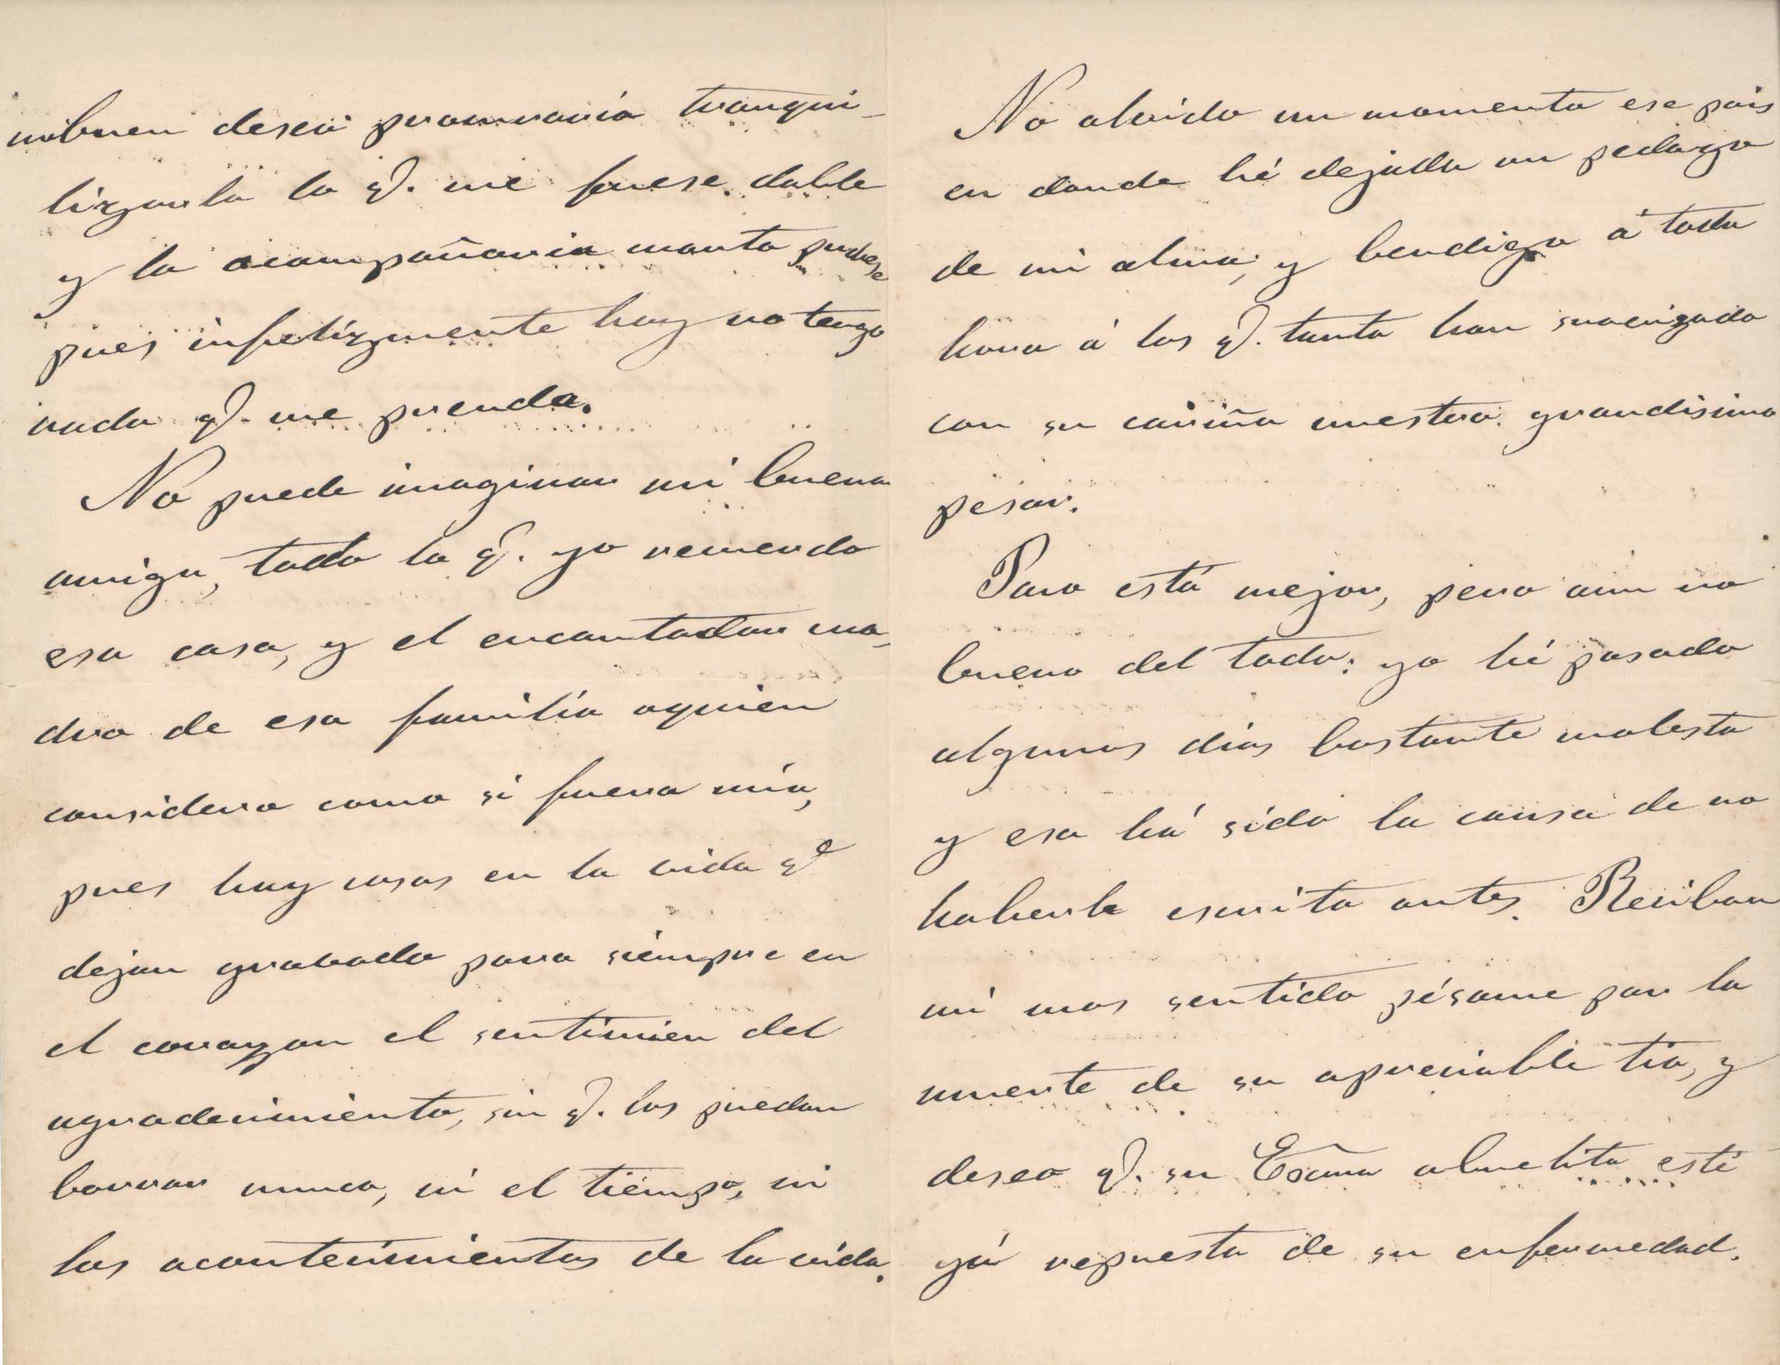 mi buen deseo procuraría tranqui-
lizarla lo q. me fuese dable
y la acompañaría cuanto pudiese
pues infelizmente hoy no tengo
nada q. me prenda.
No puede imaginar mi buena
amiga, todo lo q. yo recuerdo
esa casa, y el encantador cua-
dro de esa familia aquien
considero como si fuera mía,
pues hay cosas en la vida qe
dejan grabado para siempre en
el corazon el sentimien del
agradecimiento, sin q. los puedan
borrar nunca, ni el tiempo, ni
los acontecimientos de la vida.
No olvido un momento ese pais
en donde hé dejado un pedazo
de mi alma, y bendigo á toda
hora á los q. tanto han suavizado
con su cariño nuestro grandisimo
pesar.
Paco está mejor, pero aun no
bueno del todo: yo hé pasado
algunos dias bastante molesta
y esa há sido la causa de no
haberle escrito antes. Reciban
mi mas sentido pésame por la
muerte de su apreciable tia, y
deseo q. su Excma abuelita esté
yá repuesta de su enfermedad.